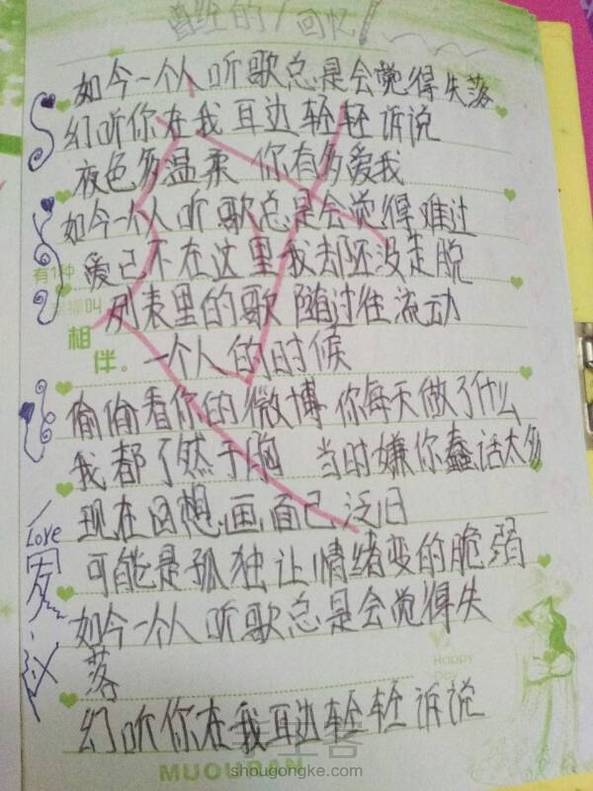 曾经的/回忆
如今一个人听歌总是会觉得失落
幻听你在我耳边轻轻诉说
夜色多温柔 你有多爱我
如今一个人听歌总是会觉得难过
爱已不在这里我却还没走脱
有1种
列表里的歌 随过往流动
相
伴。
一个人的时候
偷偷看你的微博 你每天做了什么
我都了然于胸 当时嫌你蠢话太多
现在回想画面已泛旧
Love
可能是孤独让情绪变的脆弱
如今一个人听歌总是会觉得失
落
Happy
幻听你在我耳边轻轻诉说
MUOUBAN
shougongke.com